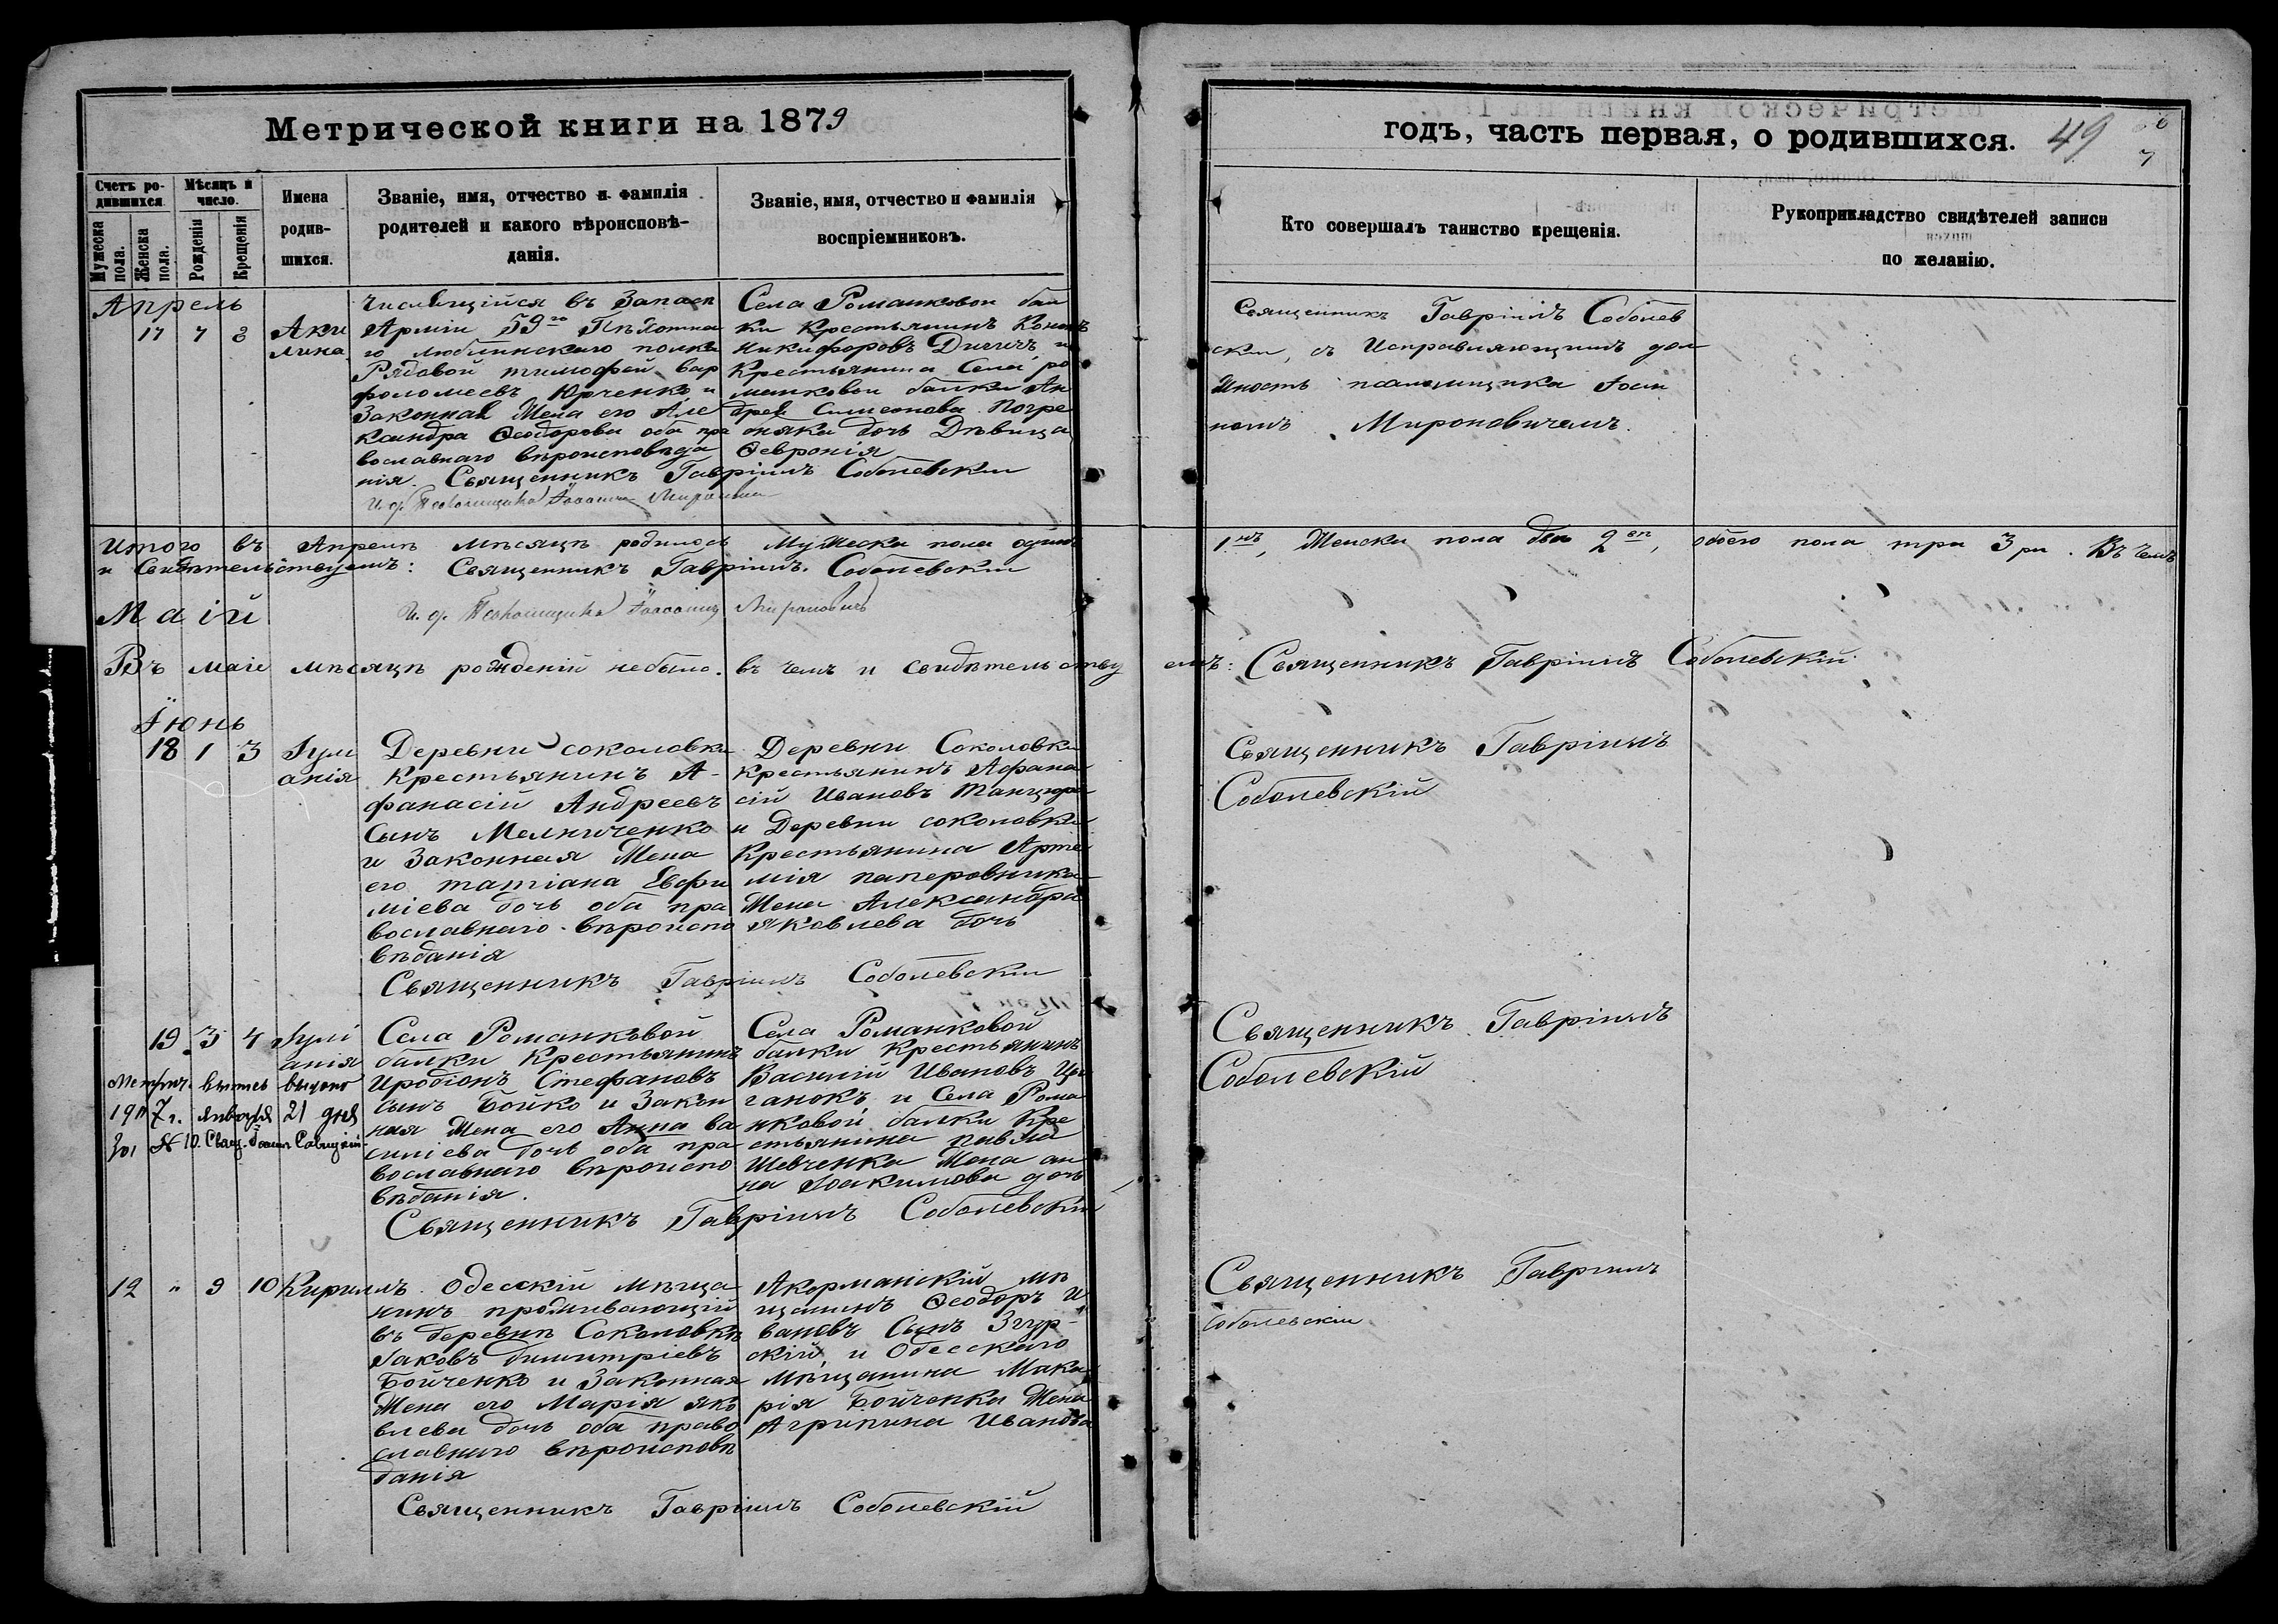 Метрической книги на 1879
годъ, часть первая, о родившихся. 49
Счетъ ро-
дившихся.
Мужеска пола.
Женска пола.
Мѣсяцъ и
число.
Рожденія
Крещенія
Имена
родив-
шихся.
Званіе, имя, отчество и фамилія
родителей и какого вѣроисповѣ-
данія.
Званіе, имя, отчество и фамилія
воспріемниковъ.
Кто совершалъ таинство крещенія.
Рукоприкладство свидѣтелей записи
по желанію.
Апрель
17 7 8
Аки
лина
Числящійся въ Запасѣ
Арміи 59го Пѣхотна
го Люблинскаго полка
Рядовой тимофей вар
фоломеевъ Юрченко и
Законная Жена его Але
ксандра Ѳеодорова оба пра
вославнаго вѣроисповѣда
нія. Священникъ Гавріилъ Соболевскій
Села Романковой бал
ки Крестьянинъ
Никифоровъ и
Крестьянина Села ро
манковой балки Ан
дрея Симеонова
дочь Дѣвица
Ѳевронія
И. д. Псаломщика Іоаннъ Мироновичъ
Священникъ Гавріилъ Соболев
скій, съ Исправляющимъ дол
жность псаломщика Іоан
номъ Мироновичемъ.
Итого въ Апрелѣ мѣсяцѣ родилось Мужеска пола одинъ 1нъ, Женска пола двѣ 2вѣ, обоего пола три 3ри. Въ чемъ
и Свидѣтельствуемъ: Священникъ Гавріилъ Соболевскій
И. д. Псаломщика Іоаннъ Мироновичъ
Маій
Въ маіѣ мѣсяцѣ рожденій небыло. въ чемъ и свидѣтельствуемъ: Священникъ Гавріилъ Соболевскій
Іюнь
18 1 3
Іули
анія
Деревни соколовки
Крестьянинъ А-
фанасій Андреевъ
Сынъ Мельниченко
и Законная Жена
его татіана Евфи
міева дочь оба пра
вославнаго вѣроиспо
вѣданія
Священникъ Гавріилъ Соболевскій
Деревни Соколовки
крестьянинъ Афана
сій Ивановъ Танцюра
и Деревни соколовки
Крестьянина Арте
мія паперовника
Жена Александра
яковлева дочь
Священникъ Гавріилъ
Соболевскій
19 3 4
Іулі
анія
Села Романковой
балки Крестьянинъ
Иродіонъ Стефановъ
сынъ Бойко и Закон
ная Жена его Анна ва
силіева дочь оба пра
вославнаго вѣроиспо
вѣданія.
Священникъ Гавріилъ Соболевскій
Села Романковой
балки Крестьянинъ
Василій Ивановъ Цы
ганокъ и Села Рома
нковой балки Кре
стьянина павла
Шевченка Жена ан
на Іоакимова дочь
Метрич. выпись выдана
1917 г. января 21 дня
за № 10. Свящ. Іоаннъ Савицкій
Священникъ Гавріилъ
Соболевскій
12 " 9 10
Кириллъ
Одесскій мѣща
нинъ проживающій
въ деревнѣ Соколовкѣ
Іаковъ димитріевъ
Бойченко и Законная
Жена его Марія яко
влева дочь оба право
славнаго вѣроисповѣ
данія
Священникъ Гавріилъ Соболевскій
Акерманскій мѣ
щанинъ Ѳеодоръ И
вановъ Сынъ Згур-
скій, и Одесскаго
Мѣщанина Мака
рія Бойченка Жена
Агрипина Иванова
Священникъ Гавріилъ
Соболевскій